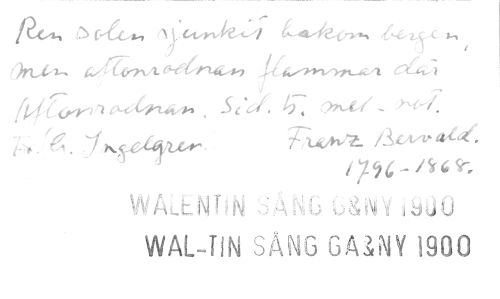 Ren solen sjunkit bakom bergen,
men aftonrodnan flammar där
Aftonrodnan. Sid. 5. mel-not.
Fr. G. Ingelgren. Franz Berwald.
1796-1868.
WALENTIN SÅNG G&NY 1900
WAL-TIN SÅNG GA&NY 1900